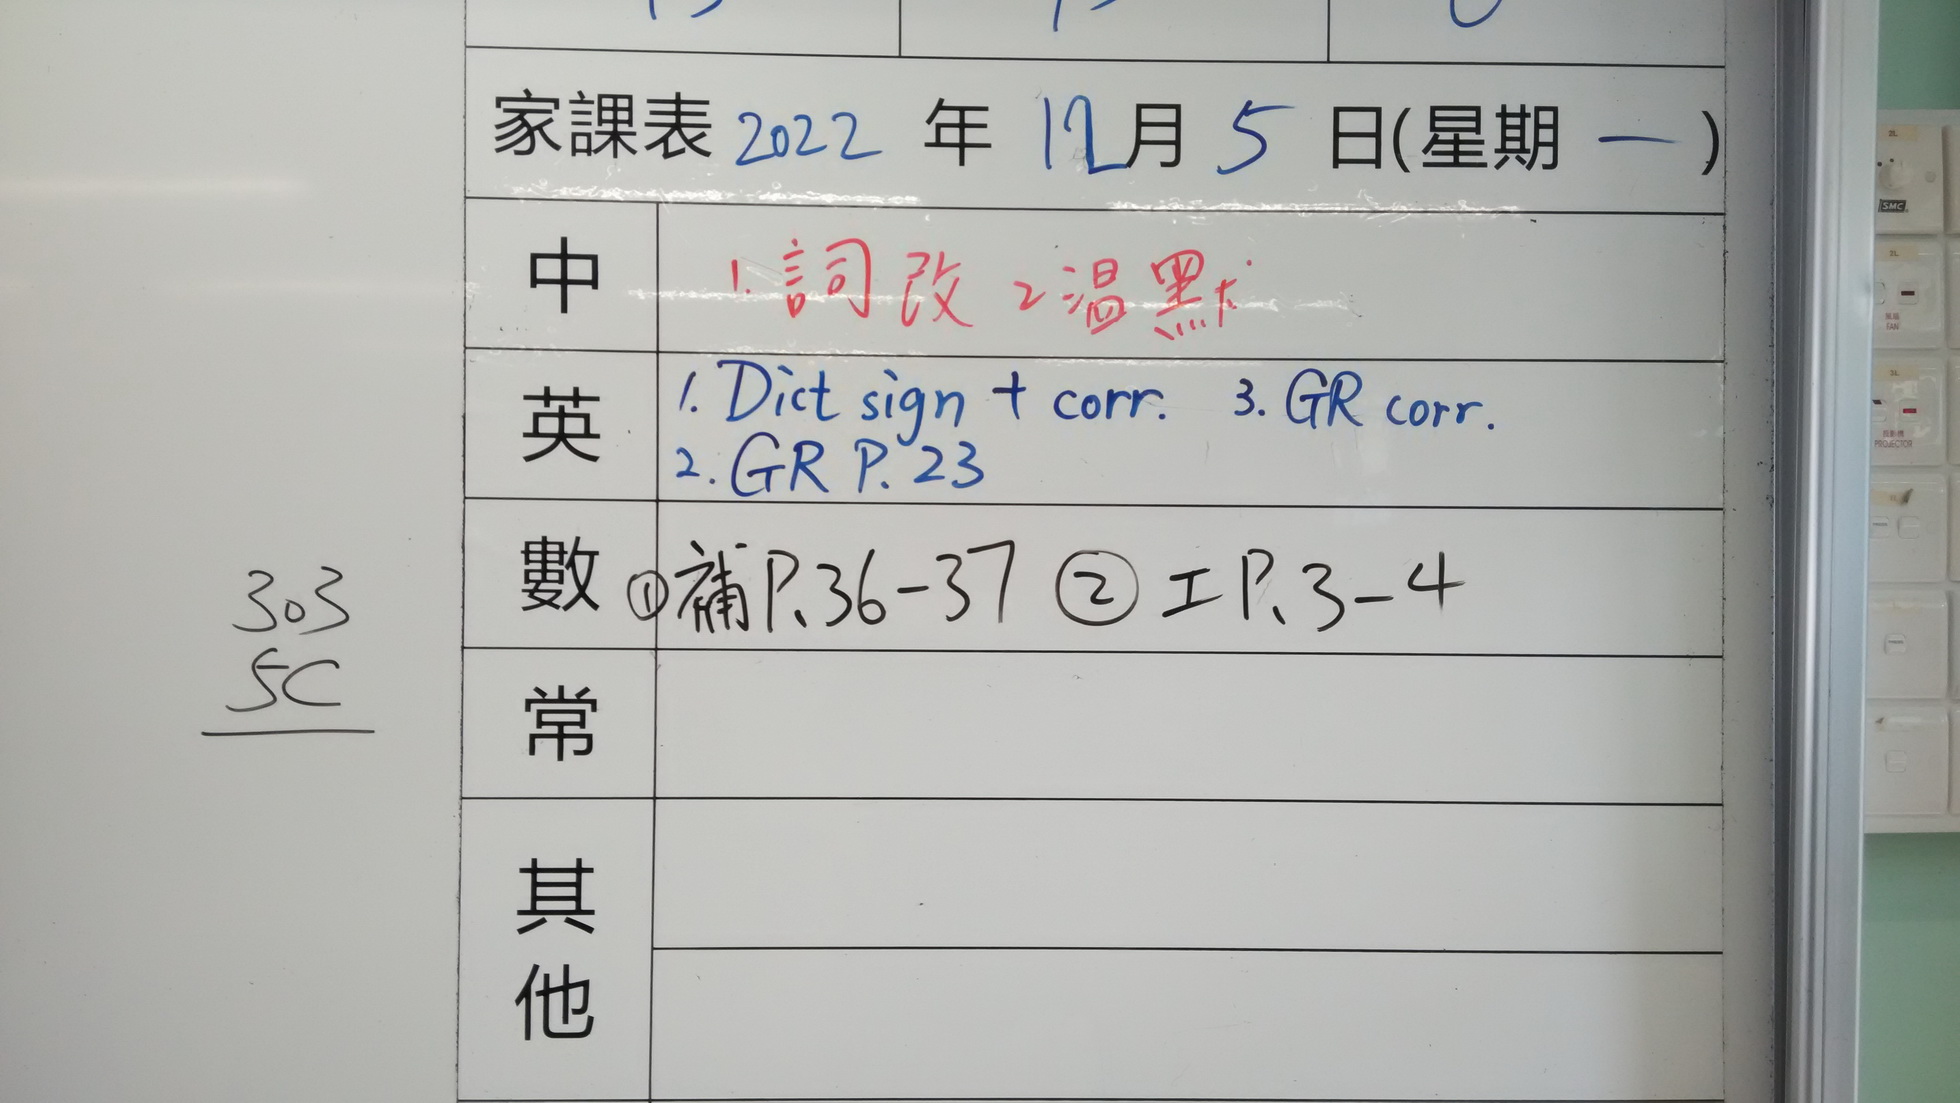 家課表 2022 年 12月 5 日(星期 一 )
中
1. 詞改 2 温默
英
1. Dict sign + corr. 3. GR corr.
2. GR P. 23
數
① 補P.36-37 ② 工P.3-4
常
其他
303
5C
2L
SMC
2L
風扇
FAN
3L
投影機
PROJECTOR